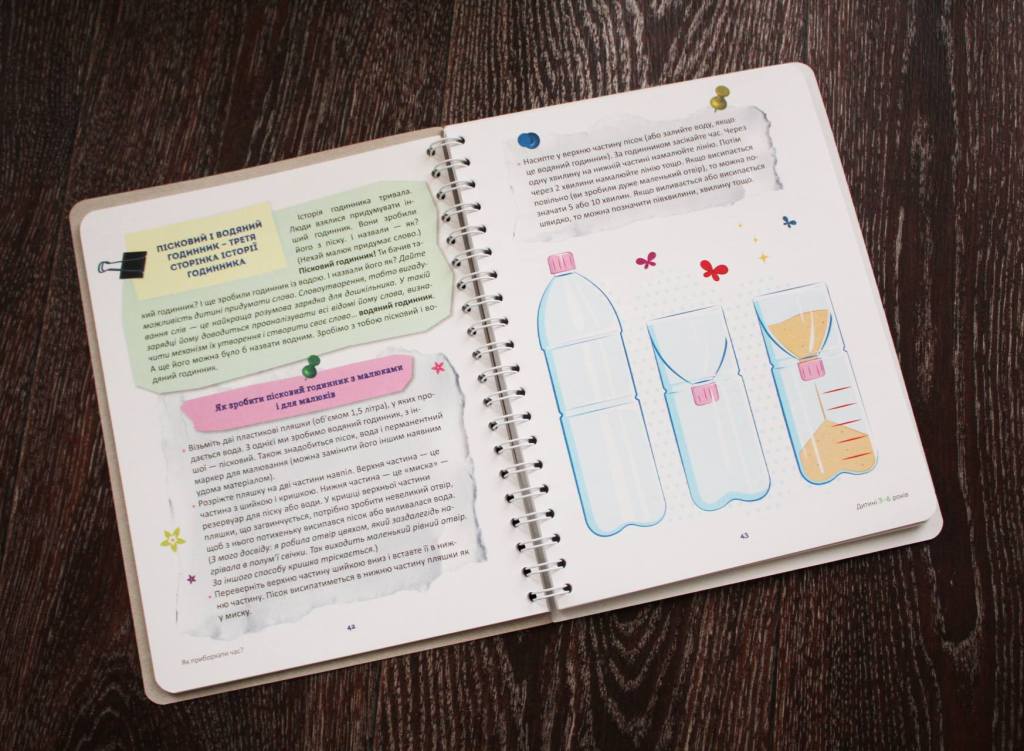 ПІСКОВИЙ І ВОДЯНИЙ
ГОДИННИК – ТРЕТЯ
СТОРІНКА ІСТОРІЇ
ГОДИННИКА
Історія годинника тривала.
Люди взялися придумувати ін-
ший годинник. Вони зробили
його з піску. І назвали — як?
(Нехай малюк придумає слово.)
Пісковий годинник! Ти бачив та-
кий годинник? І ще зробили годинник із водою. І назвали його як? Дайте
можливість дитині придумати слово. Словоутворення, тобто вигаду-
вання слів — це найкраща розумова зарядка для дошкільника. У такій
зарядці йому доводиться проаналізувати всі відомі йому слова, визна-
чити механізм їх утворення і створити своє слово... водяний годинник.
А ще його можна було б назвати водним. Зробімо з тобою пісковий і во-
дяний годинник.
Як зробити пісковий годинник з малюками
і для малюків
Візьміть дві пластикові пляшки (об'ємом 1,5 літра), у яких про-
дається вода. З однієї ми зробимо водяний годинник, з ін-
шої — пісковий. Також знадобиться пісок, вода і перманентний
маркер для малювання (можна замінити його іншим наявним
удома матеріалом).
Розріжте пляшку на дві частини навпіл. Верхня частина — це
частина з шийкою і кришкою. Нижня частина — це «миска» —
резервуар для піску або води. У кришці верхньої частини
пляшки, що загвинчується, потрібно зробити невеликий отвір,
щоб з нього потихеньку висипався пісок або виливалася вода.
(З мого досвіду: я робила отвір цвяхом, який заздалегідь на-
грівала в полум'ї свічки. Так виходить маленький рівний отвір.
За іншого способу кришка тріскається.)
Переверніть верхню частину шийкою вниз і вставте її в ниж-
ню частину. Пісок висипатиметься в нижню частину пляшки як
у миску.
42
Як приборкати час?
Насипте у верхню частину пісок (або залийте воду, якщо
це водяний годинник). За годинником засікайте час. Через
одну хвилину на нижній частині намалюйте лінію. Потім
через 2 хвилини намалюйте лінію тощо. Якщо висипається
повільно (ви зробили дуже маленький отвір), то можна по-
значати 5 або 10 хвилин. Якщо виливається або висипається
швидко, то можна позначити півхвилини, хвилину тощо.
43
Дитині 5–6 років